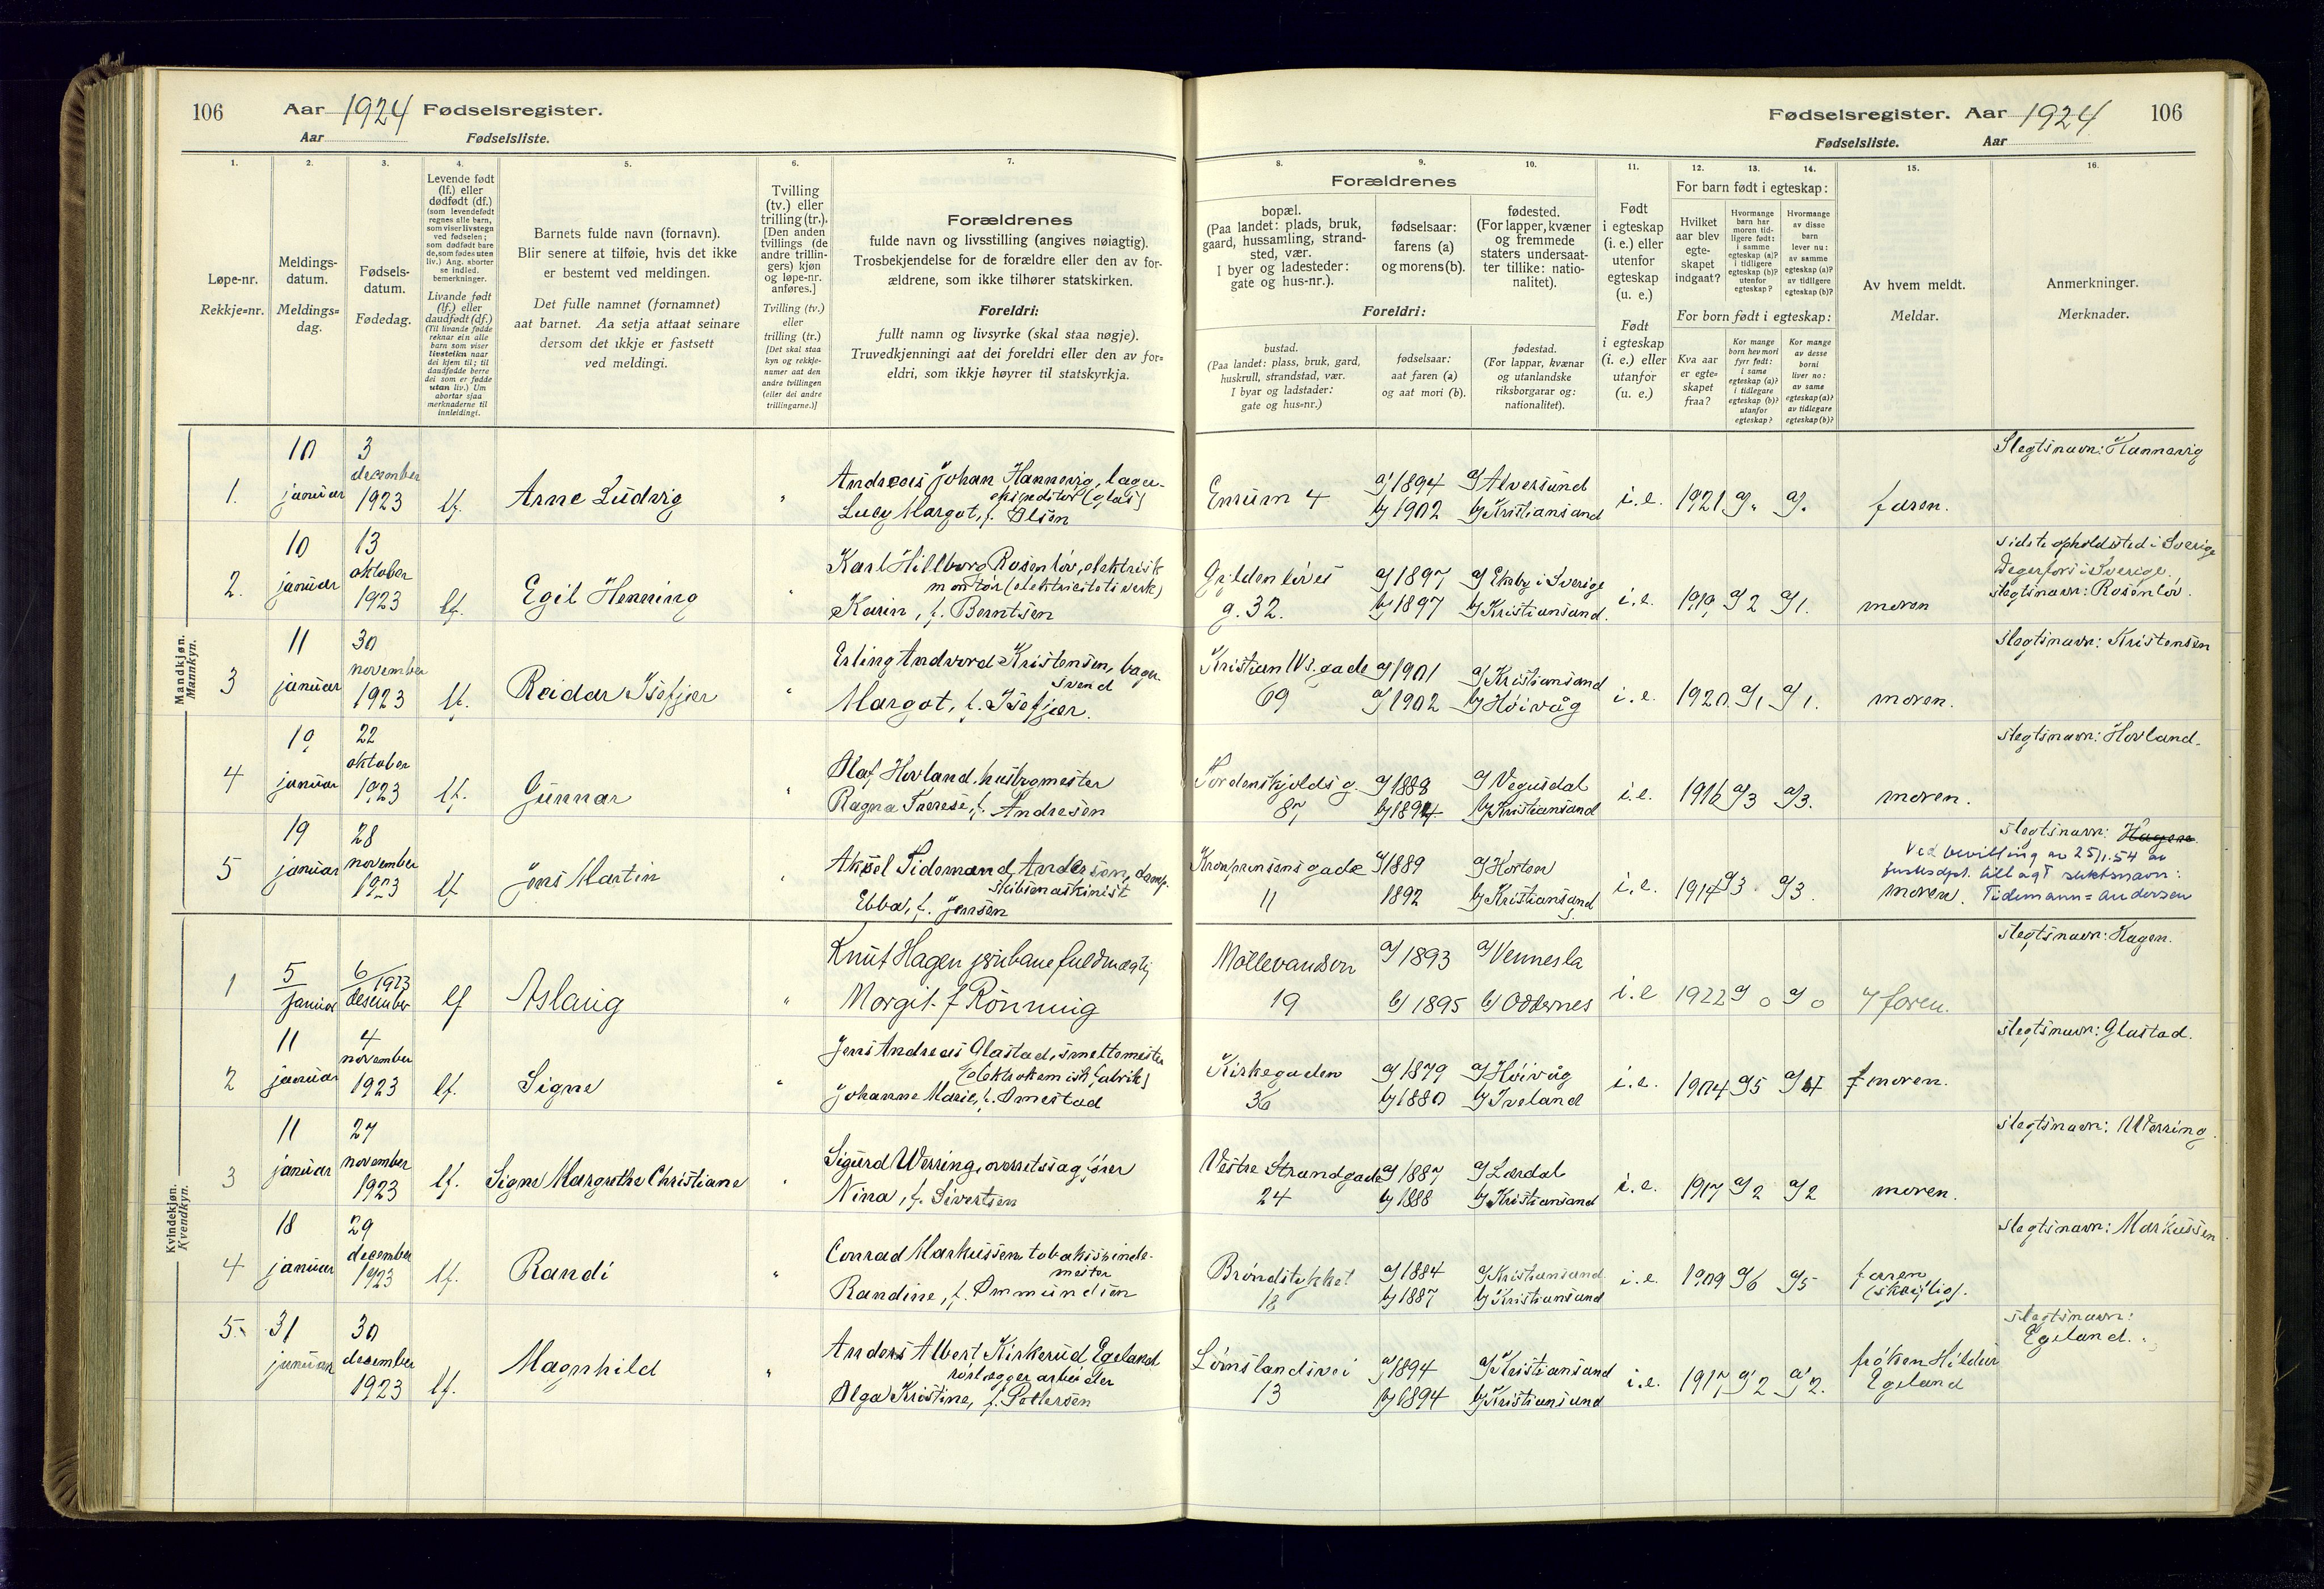 106 Aar 1924 Fødselsregister.
Aar Fødselsliste.
Fødselsregister. Aar 1924 106
Fødselsliste. Aar
1.
2.
3.
4.
5.
6.
7.
8.
9.
10.
11.
12.
13.
14.
15.
16.
Løpe-nr.
Rekkje=nr.
Meldings-
datum.
Meldings=
dag.
Fødsels-
datum.
Fødedag.
Levende født
(lf.) eller
dødfødt (df.)
(som levendefødt
regnes alle barn,
som viser livstegn
ved fødselen;
som dødfødt bare
de, som fødes uten
liv.) Ang. aborter
se indled.
bemerkninger.
Livande født
(lf.) eller
daudfødt (df.)
(Til livande fødde
reknar ein alle
barn som viser
livsteikn naar
dei kjem til; til
daudfødde berre
dei som er fødde
utan liv.) Um
abortar sjaa
merknaderne til
innleidingi.
Barnets fulde navn (fornavn).
Blir senere at tilføie, hvis det ikke
er bestemt ved meldingen.
Det fulle namnet (fornamnet)
aat barnet. Aa setja attaat seinare
dersom det ikkje er fastsett
ved meldingi.
Tvilling
(tv.) eller
trilling (tr.).
[Den anden
tvillings (de
andre trillin-
gers) kjøn
og løpe-nr.
anføres.]
Tvilling (tv.)
eller
trilling (tr.)
[Det skal staa
kyn og rekkje-
numer aat den
andre tvillingen
(eller dei andre
trillingarne.)]
Forældrenes
fulde navn og livsstilling (angives nøiagtig).
Trosbekjendelse for de forældre eller den av for-
ældrene, som ikke tilhører statskirken.
Foreldri:
fullt namn og livsyrke (skal staa nøgje).
Truvedkjenningi aat dei foreldri eller den av for=
eldri, som ikkje høyrer til statskyrkja.
Forældrenes
bopæl.
(Paa landet: plads, bruk,
gaard, hussamling, strand-
sted, vær.
I byer og ladesteder:
gate og hus-nr.).
fødselsaar:
farens (a)
og morens (b).
fødested.
(For lapper, kvæner
og fremmede
staters undersaat-
ter tillike: natio-
nalitet).
Foreldri:
bustad.
(Paa landet: plass, bruk, gard,
huskrull, strandstad, vær.
I byar og ladstader:
gate og hus=nr.)
fødselsaar:
aat faren (a)
og aat mori (b).
fødestad.
(For lappar, kvænar
og utanlandske
riksborgarar og:
nationalitet).
Født
i egteskap
(i. e.) eller
utenfor
egteskap
(u. e.)
Født
i egteskap
(i. e.) eller
utanfor
(u. e.)
For barn født i egteskap:
Hvilket
aar blev
egte-
skapet
indgaat?
Hvormange
barn har
moren tid-
ligere født:
i samme
egteskap (a)?
i tidligere
egteskap (b)?
utenfor
egteskap?
Hvormange
av disse
barn
lever nu:
av samme
egteskap (a)?
av tidligere
egteskap (b)?
For born født i egteskap:
Kva aar
er egte-
skapet
fraa?
Kor mange
born hev mori
fyrr født:
i same
egteskap (a)?
i tidlegare
egteskap (b)?
utanfor
egteskap?
Kor mange
av desse
borni
liver no:
av same
egteskap (a)?
av tidlegare
egteskap (b)?
Av hvem meldt.
Meldar.
Anmerkninger.
Merknader.
Mandkjøn.
Mannkyn.
1. 10 januar 3 december 1923 lf. Arne Ludvig "
Andreas Johan Hannevig, lager-
ekspeditør (glas)
Lucy Margot, f. Olsen
Enrum 4 a) 1894 b) 1902 a) Alversund b) Kristiansand i.e. 1921 faren. Slegtsnavn: Hannevig
2. 10 januar 13 oktober 1923 lf. Egil Henning "
Karl Hillborg Rosenlöv, elektrisk
montør (elektricitetsverk)
Karin, f. Berntsen
Gyldenløves
g. 32. a) 1897 b) 1897 a) Ekeby i Sverige b) Kristiansand. i.e. 1919 a) 2 a) 1. moren
sidste opholdsted i Sverige
Degerfors i Sverige.
slegtsnavn: Rosenlöv.
3 11 januar 30 november 1923 lf. Reidar Isefjær "
Erling Andvord Kristensen, bager-
svend
Margot, f. Isefjær.
Kristian IVs gade
69 a) 1901 1902 a) Kristiansand b) Høivåg i.e. 1920. a) 1 a) 1. moren. slegtsnavn: Kristensen
4 19 januar 22 oktober 1923 lf. Gunnar "
Olaf Hovland, husbygmester
Ragna Therese, f. Andresen
Tordenskjolds g.
87 a) 1888 b) 1894 a) Vegusdal b) Kristiansand i.e. 1916 a) 3 a) 3. moren. slegtsnavn: Hovland.
5 19 januar 28 november 1923 lf Jens Martin "
Aksel Tidemand Andersen, damp-
skibsmaskinist
Ebba, f. Jensen
Kronprinsensgade
11 a) 1889 1892 a) Horten b) Kristiansand S. i.e. 1914 a) 3. a) 3. moren.
slegtsnavn: Hagen.
Ved bevilling av 25/1.54 av
justisdpt. tillagt slektsnavn:
Tidemann=Andersen
Kvindekjøn.
Kvendkyn.
1 5 januar 6/1923 desember lf Aslaug "
Knut Hagen jernbanefuldmægtig
Margit f Rønning
Møllevandsvn
19 a) 1893 b) 1895 a) Vennesla b) Oddernes i.e 1922 a) 0 a) 0 faren. slegtsnavn: Hagen.
2 11 januar 4 november 1923 lf. Signe "
Jens Andreas Glastad, smeltemester
(elektrokemisk fabrik)
Johanne Marie, f. Omestad
Kirkegaden
36 a) 1879 b) 1880 a) Høivåg b) Iveland i.e. 1904 a) 5 moren. slegtsnavn: Glastad.
3 11 januar 27 november 1923 lf. Signe Margrethe Christiane "
Sigurd Werring, overretssagfører
Nina, f. Sivertsen
Vestre Strandgade
24 a) 1887 b) 1888 a) Lærdal b) Kristiansand i.e. 1917 a) 2 a) 2 moren. slegtsnavn: Werring.
4 18 januar 29 december 1923 lf. Randi "
Conrad Markussen, tobaksspinde-
mester
Randine, f. Ommundsen
Brøndstykket
18 a) 1884 b) 1887 a) Kristiansand b) Kristiansand i.e. 1909 a) 6 a) 5 faren
(skriftlig). slegtsnavn: Markussen
5. 31 januar 30 desember 1923 lf. Magnhild "
Anders Albert Kirkerud Egeland
rørlæggerarbeider
Olga Kristine, f. Pettersen
Lømslandsvei
13 a) 1894 b) 1894 a) Kristiansand b) Kristiansand i.e. 1917 a) 2 a) 2. frøken Hildur
Egeland
slegtsnavn:
Egeland.